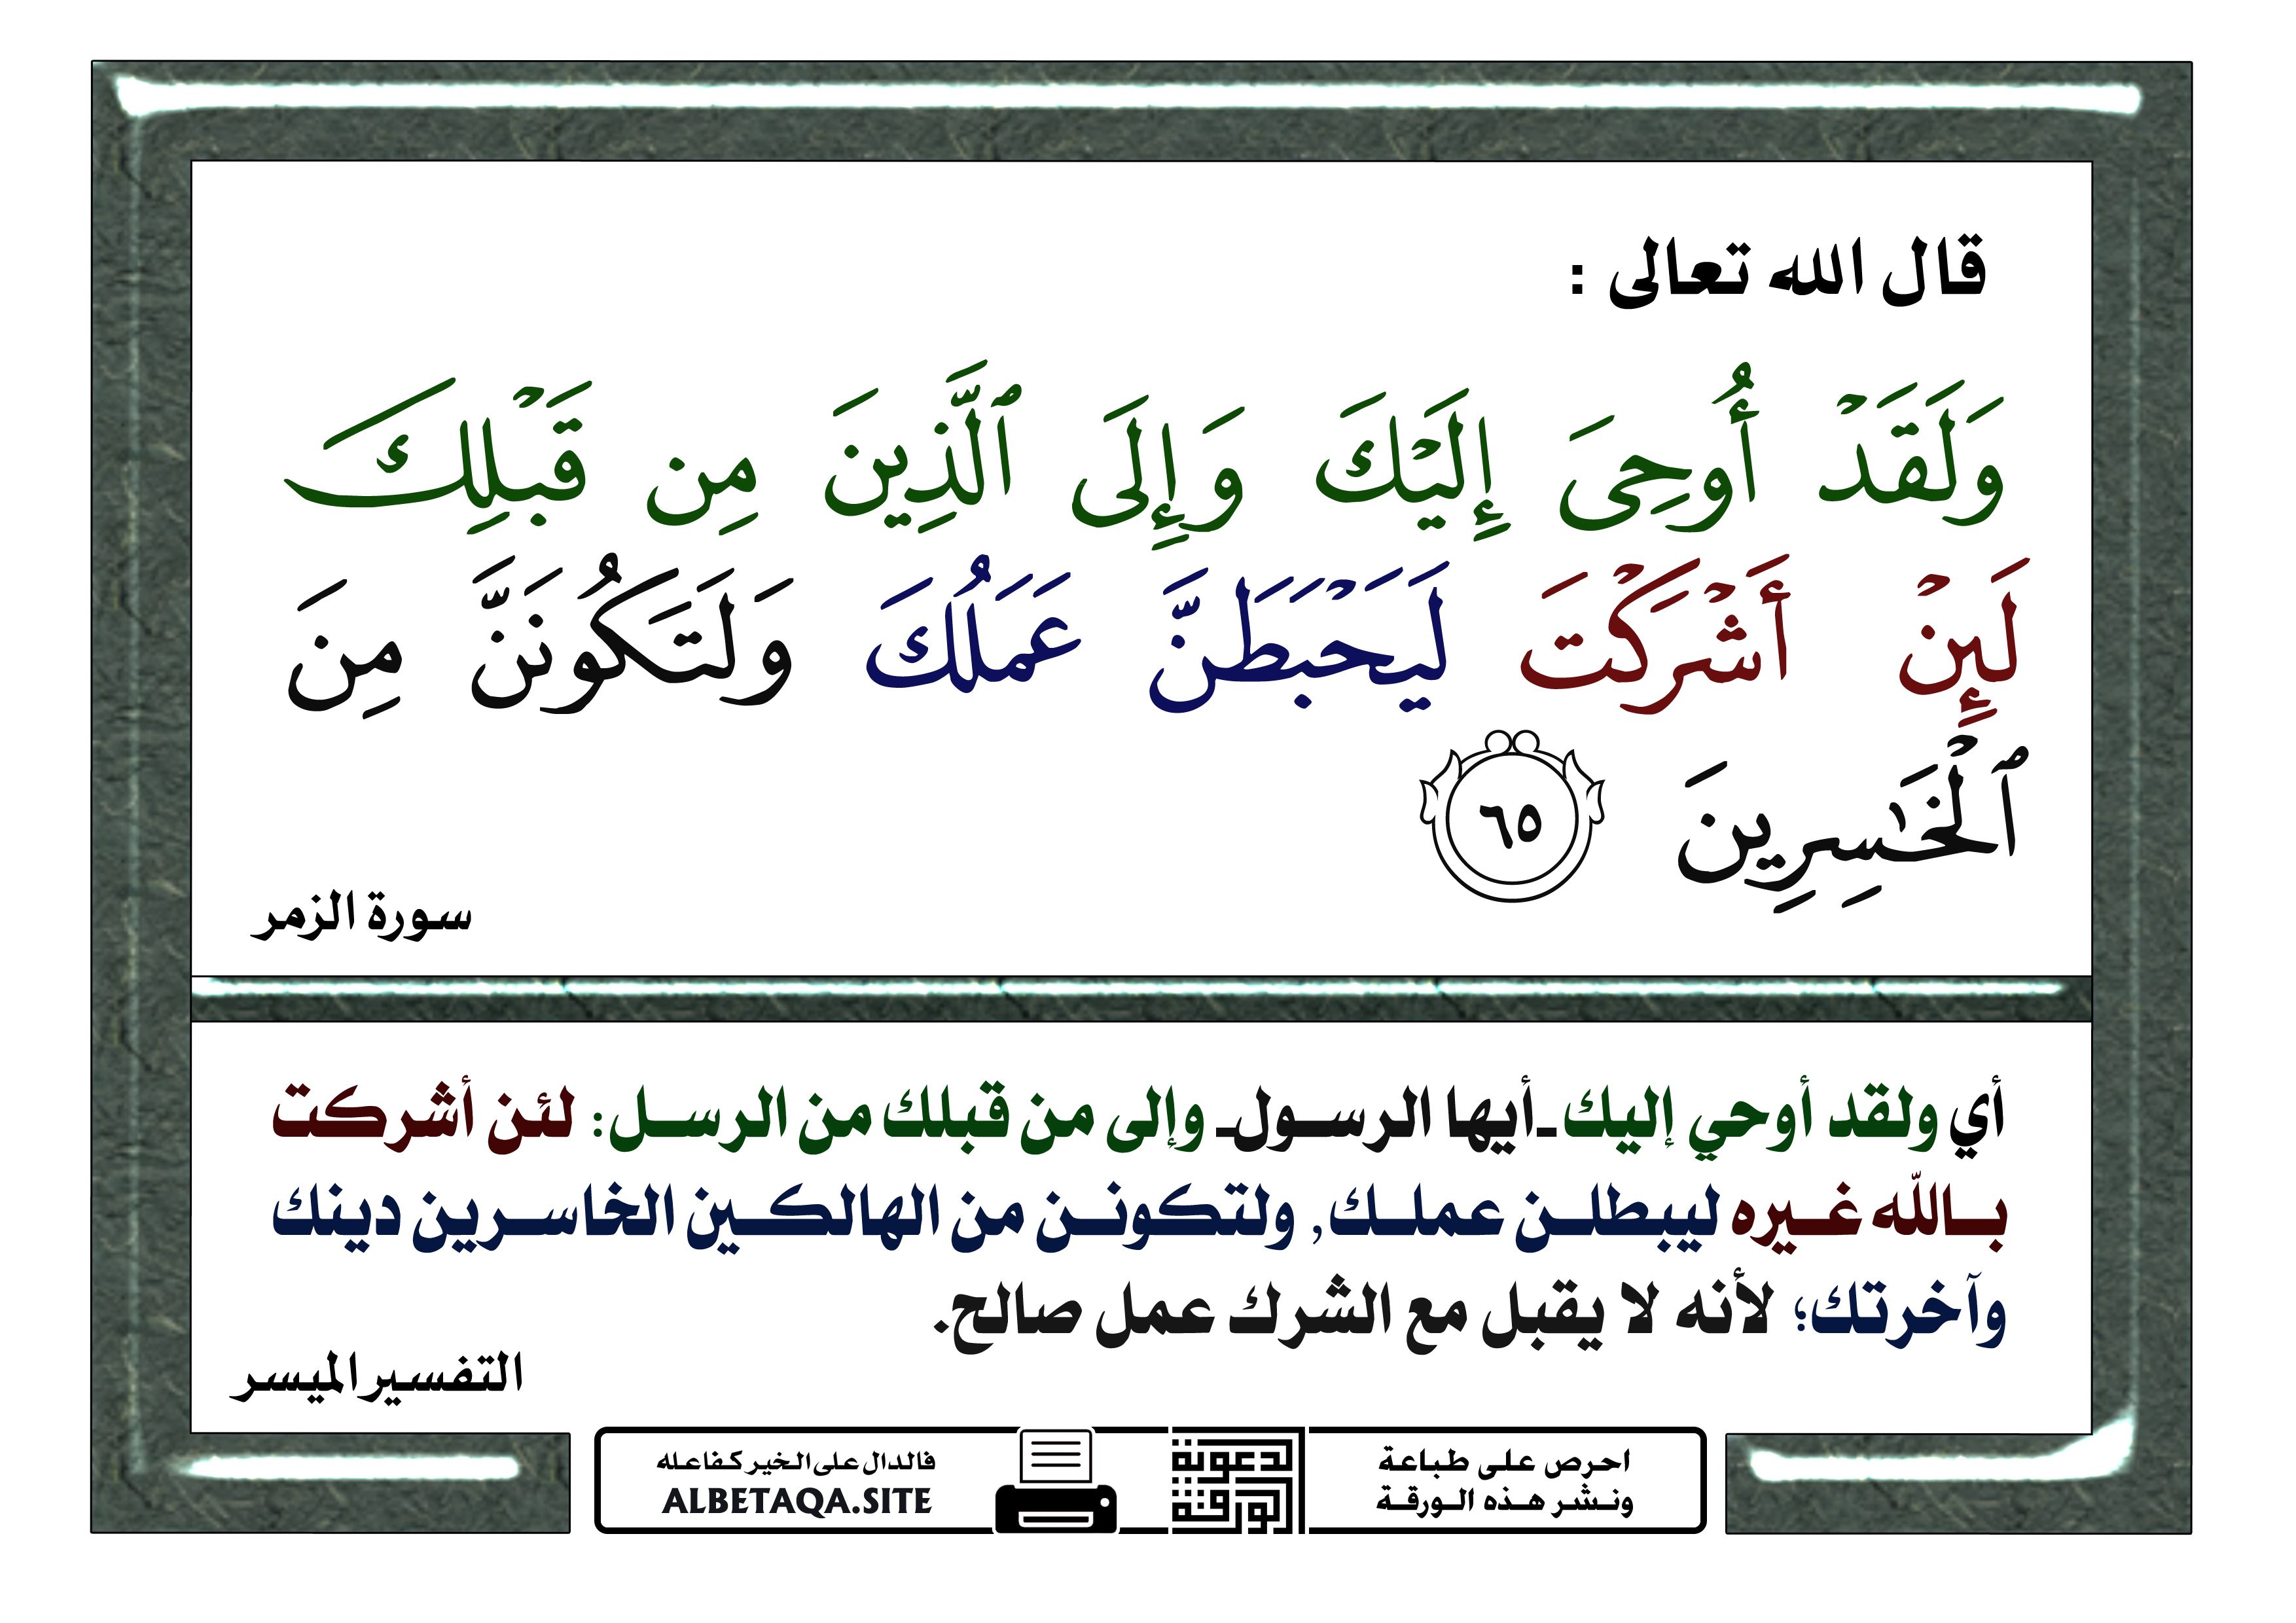 قال الله تعالى :
وَلَقَدْ أُوحِىَ إِلَيْكَ وَإِلَى ٱلَّذِينَ مِن قَبْلِكَ
لَئِنْ أَشْرَكْتَ لَيَحْبَطَنَّ عَمَلُكَ وَلَتَكُونَنَّ مِنَ
ٱلْخَٰسِرِينَ ٦٥
سورة الزمر
أي ولقد أوحي إليك ـ أيها الرسول ـ وإلى من قبلك من الرسل: لئن أشركت
بالله غيره ليبطلن عملك, ولتكونن من الهالكين الخاسرين دينك
وآخرتك؛ لأنه لا يقبل مع الشرك عمل صالح.
التفسير الميسر
احرص على طباعة
ونشر هذه الورقة
الورقة
الدعوية
فالدال على الخير كفاعله
ALBETAQA.SITE